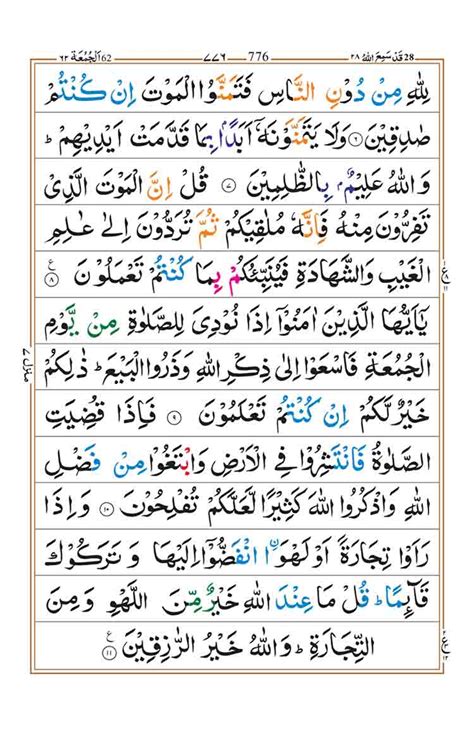 28 قَدْ سَمِعَ اللهُ ٢٨ 776 ٧٧٦ 62 اَلْجُمُعَة ٦٢
لِلّٰهِ مِنْ دُوْنِ النَّاسِ فَتَمَنَّوُا الْمَوْتَ اِنْ كُنْتُمْ
صٰدِقِيْنَ ۝٦ وَلَا يَتَمَنَّوْنَهٗۤ اَبَدًۢا بِمَا قَدَّمَتْ اَيْدِيْهِمْ ؕ
وَاللّٰهُ عَلِيْمٌۢ بِالظّٰلِمِيْنَ ۝٧ قُلْ اِنَّ الْمَوْتَ الَّذِيْ
تَفِرُّوْنَ مِنْهُ فَاِنَّهٗ مُلٰقِيْكُمْ ثُمَّ تُرَدُّوْنَ اِلٰى عٰلِمِ
الْغَيْبِ وَالشَّهَادَةِ فَيُنَبِّئُكُمْ بِمَا كُنْتُمْ تَعْمَلُوْنَ ۝٨ ع
يٰۤاَيُّهَا الَّذِيْنَ اٰمَنُوْۤا اِذَا نُوْدِيَ لِلصَّلٰوةِ مِنْ يَّوْمِ
الْجُمُعَةِ فَاسْعَوْا اِلٰى ذِكْرِ اللّٰهِ وَذَرُوا الْبَيْعَ ؕ ذٰلِكُمْ
خَيْرٌ لَّكُمْ اِنْ كُنْتُمْ تَعْلَمُوْنَ ۝٩ فَاِذَا قُضِيَتِ
الصَّلٰوةُ فَانْتَشِرُوْا فِي الْاَرْضِ وَابْتَغُوْا مِنْ فَضْلِ
اللّٰهِ وَاذْكُرُوا اللّٰهَ كَثِيْرًا لَّعَلَّكُمْ تُفْلِحُوْنَ ۝١٠ وَاِذَا
رَاَوْا تِجَارَةً اَوْ لَهْوَا ۨانْفَضُّوْۤا اِلَيْهَا وَتَرَكُوْكَ
قَآئِمًا ؕ قُلْ مَا عِنْدَ اللّٰهِ خَيْرٌ مِّنَ اللَّهْوِ وَمِنَ
التِّجَارَةِ ؕ وَاللّٰهُ خَيْرُ الرّٰزِقِيْنَ ۝١١ ع
منزل ٧